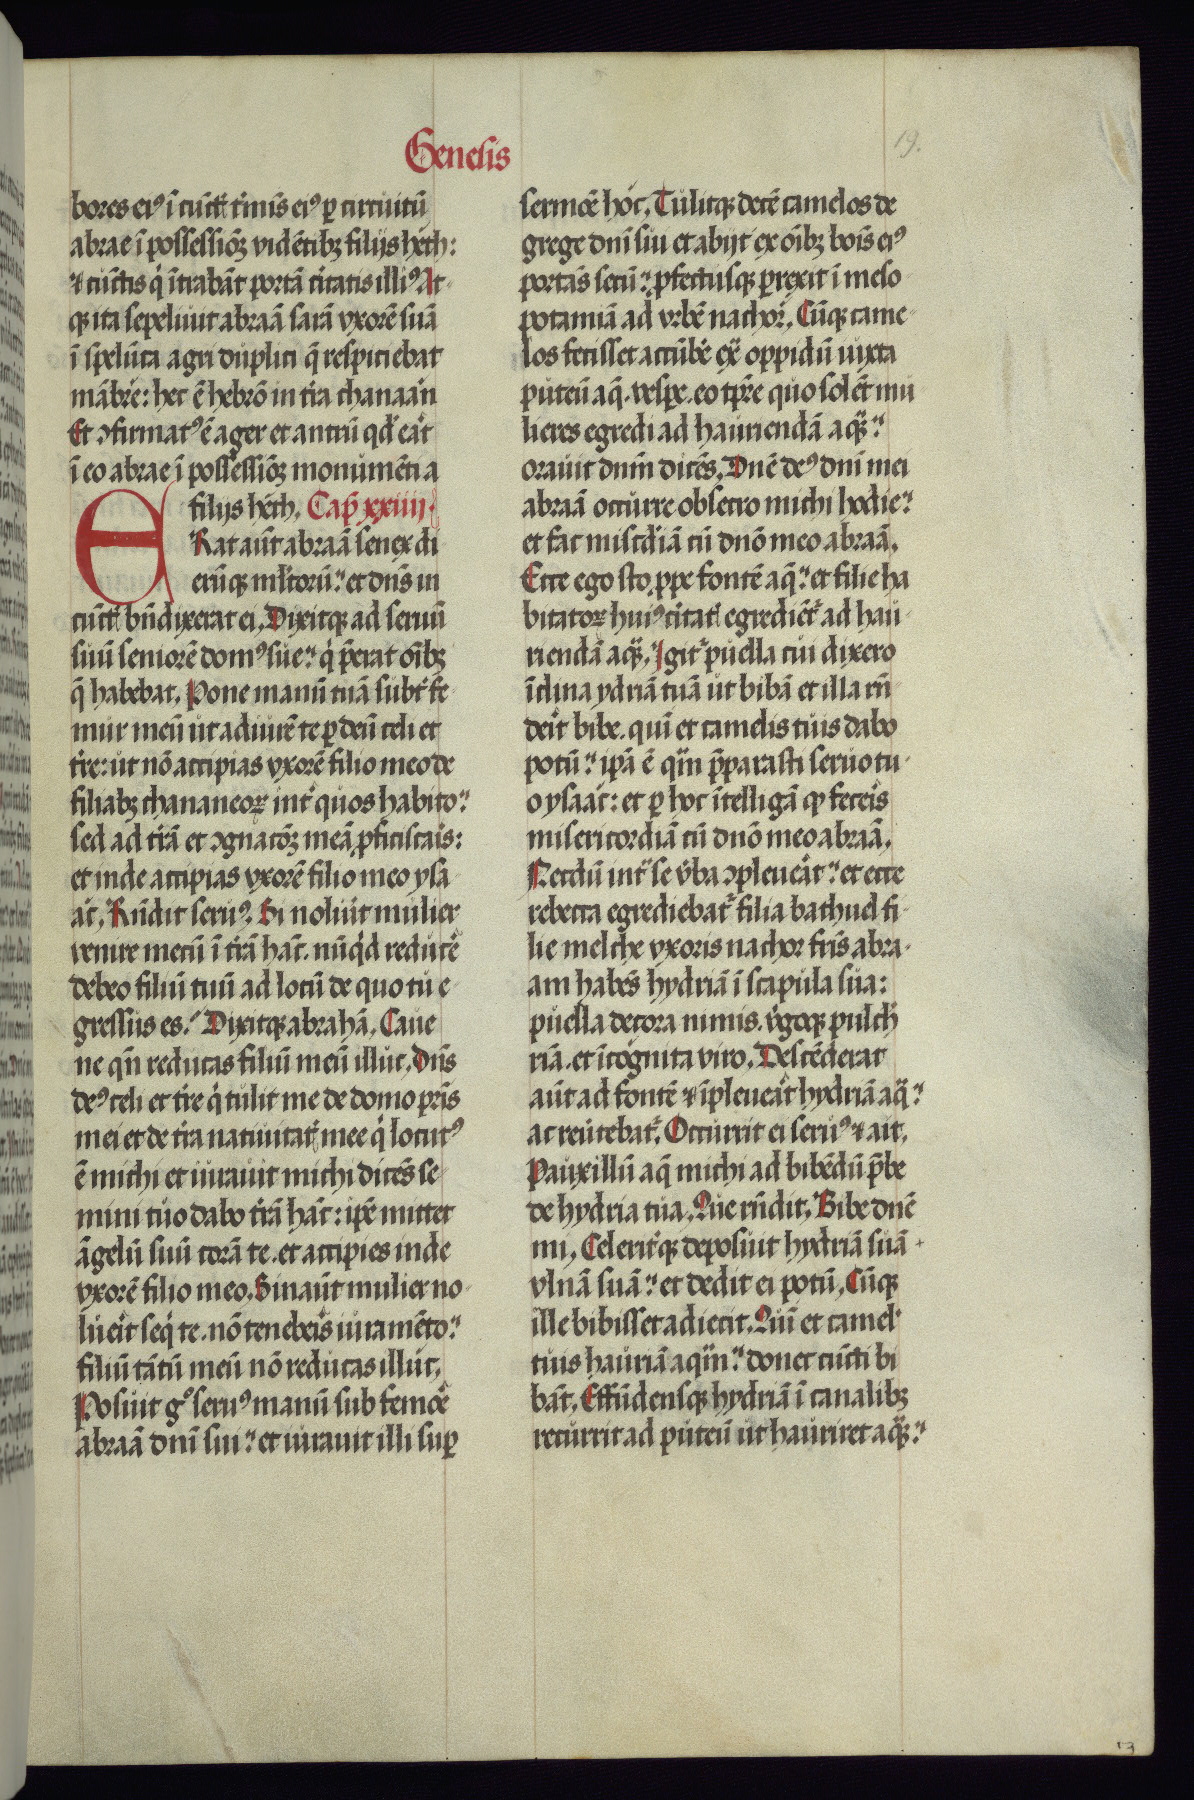 Genesis
19.
bores ei⁹ ī cūct҃ t̛mīs ei⁹ ꝑ circuitū
abrae ī possessiōꝫ vidētibꝫ filijs heth:
⁊ cūctis q̇ ītrabāt portā citatis illi⁹ At-
qꝫ ita sepeliuit abraā sarā vxorē suā
ī spelūca agri duplici q̄ respiciebat
mābre: hec ē hebrō in t̛ra chanaan
Et ꝯfirmat⁹ ē ager et antrū qd̛ eat̛
ī eo abrae ī possessiōꝫ monumēti a
filijs heth. Cap̄ xxiiij.
ERat aūt abraā senex di
erūqꝫ ml̛torū: et dn̄s in
cūct҃ bn̄dixerat ei. Dixitqꝫ ad seruū
suū seniorē dom⁹ sue: q̇ p̄erat oībꝫ
q̄ habebat. Pone manū tuā subt̛ fe-
mur meū ut adiurē te ꝑ deū celi et
t̛re: ut nō accipias vxorē filio meo de
filiabꝫ chananeoꝝ int̛ quos habito:
sed ad t̛rā et ꝯgnacōꝫ meā ꝓficiscais̛:
et inde accipias vxorē filio meo ysa
ac. Rn̄dit seru⁹. Si noluit̛ mulier
venire mecū ī t̛rā hāc. nūqd̛ reducē
debeo filiū tuū ad locū de quo tu e-
gressus es: Dixitqꝫ abrahā. Caue
ne qn̄ reducas filiū meū illuc. Dn̄s
de⁹ celi et t̛re q̇ tulit me de domo pr̄is
mei et de t̛ra natiuitat҃ mee q̇ locut⁹
ē michi et iurauit michi dicēs se-
mini tuo dabo t̛rā hāc: ip̄e mittet
āgelū suū corā te. et accipies inde
vxorē filio meo. Sin aūt mulier no-
lueit̛ seq̇ te. nō teneberis iuramēto:
filiū tātū meū nō reducas illuc.
Posuit gͦ seru⁹ manū sub femoe̛
abraā dn̄i sui: et iurauit illi suꝑ
sermōe hoc. Tulitqꝫ decē camelos de
grege dn̄i sui et abijt ex oībꝫ bois̄ ei⁹
portās secū: ꝓfectusqꝫ ꝑrexit ī meso
potamiā ad vrbē nachor. Cūqꝫ came-
los fecisset accūbe̛ ex̄ oppidū iuxta
puteū aq̄. vesp̄e. eo tp̄re quo solēt mu
lieres egredi ad hauriendā aqᷓ:
orauit dn̄m dicēs. Dn̄e de⁹ dn̄i mei
abraā occurre obsecro michi hodie:
et fac mis̄cdiā cū dn̄o meo abraā.
Ecce ego sto ꝓpe fontē aq̄: et filie ha
bitatoꝝ hui⁹ citat҃ egrediēt̛ ad hau-
riendā aqᷓ. Igit̛ puella cui dixero
īclina ydriā tuā ut bibā et illa rn̄
deit̛ bibe. quī et camelis tuis dabo
potū: ip̄a ē qᷓm p̄parasti seruo tu-
o ysaac: et ꝑ hoc ītelligā ꝙ feceis̛
misericordiā cū dn̄o meo abraā.
Necdū intᷓ se v̄ba ꝯpleueat̛: et ecce
rebecca egrediebat̛ filia bathuel fi-
lie melche vxoris nachor fr̄is abra-
am habēs hydriā ī scapula sua:
puella decora nimis. v̛goqꝫ pulch̛
riā. et īcognita viro. Descēderat
aūt ad fontē ⁊ īpleueat̛ hydriā aqᷓ:
ac reūtebat̛. Occurrit ei seru⁹ ⁊ ait.
Pauxillū aq̄ michi ad bibēdū p̄be
de hydria tua. Que rn̄dit. Bibe dn̄e
mi. Celerit̛qꝫ deposuit hydriā suā +
vlnā suā: et dedit ei potū. Cūqꝫ
ille bibisset adiecit. Qūi et camel҃
tuis hauriā aqᷓm: donec cūcti bi
bāt. Effūdensqꝫ hydriā ī canalibꝫ
recurrit ad puteū ut hauriret aqᷓ:
13